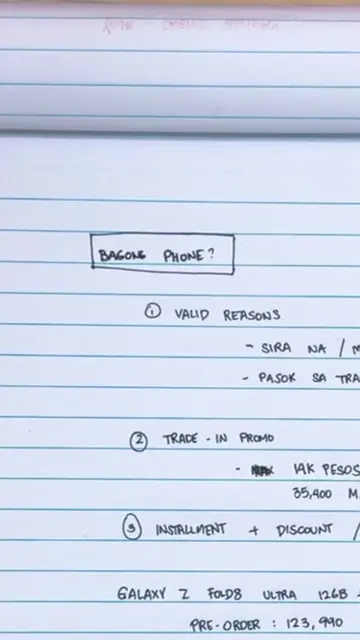 BAGONG PHONE?
① VALID REASONS
- SIRA NA / M
- PASOK SA TRA
② TRADE-IN PROMO
- 14K PESOS
35,400 M
③ INSTALLMENT + DISCOUNT /
GALAXY Z FOLD8 ULTRA 12GB
PRE-ORDER : 123,990